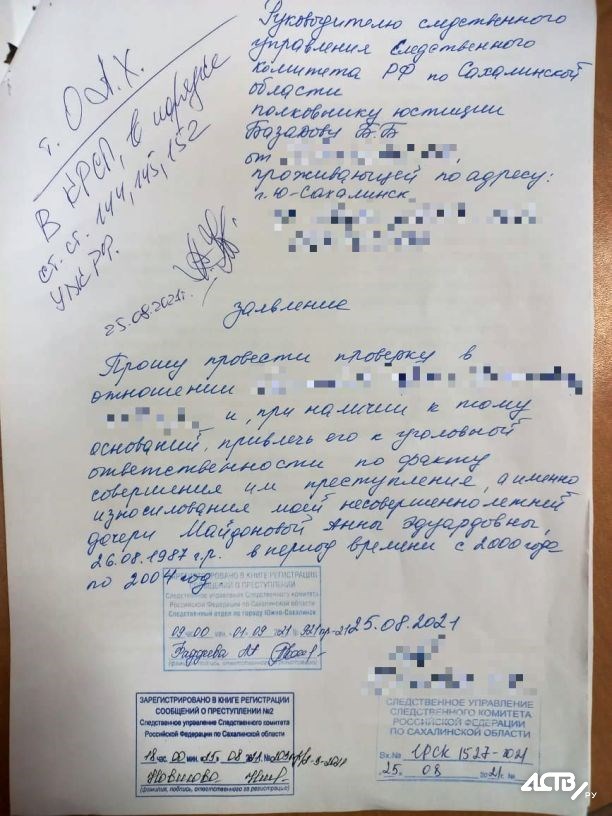 Руководителю следственного
управления Следственного
комитета РФ по Сахалинской
области
полковнику юстиции
Базарову Б.Б
от
проживающей по адресу:
г. Ю-Сахалинск
г. О.А.Х.
В КРСП, в порядке
ст. ст. 144, 145, 152
УПК РФ.
25.08.2021г.
заявление
Прошу провести проверку в
отношении
и, при наличии к тому
оснований, привлечь его к уголовной
ответственности по факту
совершения им преступления, а именно
износилования моей несовершеннолетней
дочери Майдоновой Анны Эдуардовны,
26.08.1987 г.р. в период времени с 2000 года
по 2004 год.
25.08.2021
ЗАРЕГИСТРИРОВАНО В КНИГЕ РЕГИСТРАЦИИ
СООБЩЕНИЙ О ПРЕСТУПЛЕНИИ
Следственное управление Следственного комитета
Российской Федерации по Сахалинской области
Следственный отдел по городу Южно-Сахалинск
09 час 00 мин. 01.09 2021 № 921пр-21
(фамилия, подпись, ответственного за регистрацию)
ЗАРЕГИСТРИРОВАНО В КНИГЕ РЕГИСТРАЦИИ
СООБЩЕНИЙ О ПРЕСТУПЛЕНИИ №2
Следственное управление Следственного комитета
Российской Федерации по Сахалинской области
18 час. 00 мин. 25. 08 2021. №
(фамилия, подпись, ответственного за регистрацию)
СЛЕДСТВЕННОЕ УПРАВЛЕНИЕ
СЛЕДСТВЕННОГО КОМИТЕТА
РОССИЙСКОЙ ФЕДЕРАЦИИ
ПО САХАЛИНСКОЙ ОБЛАСТИ
Вх.№ 1527-2021
"25" 08 2021г. №
АСТВ.РУ